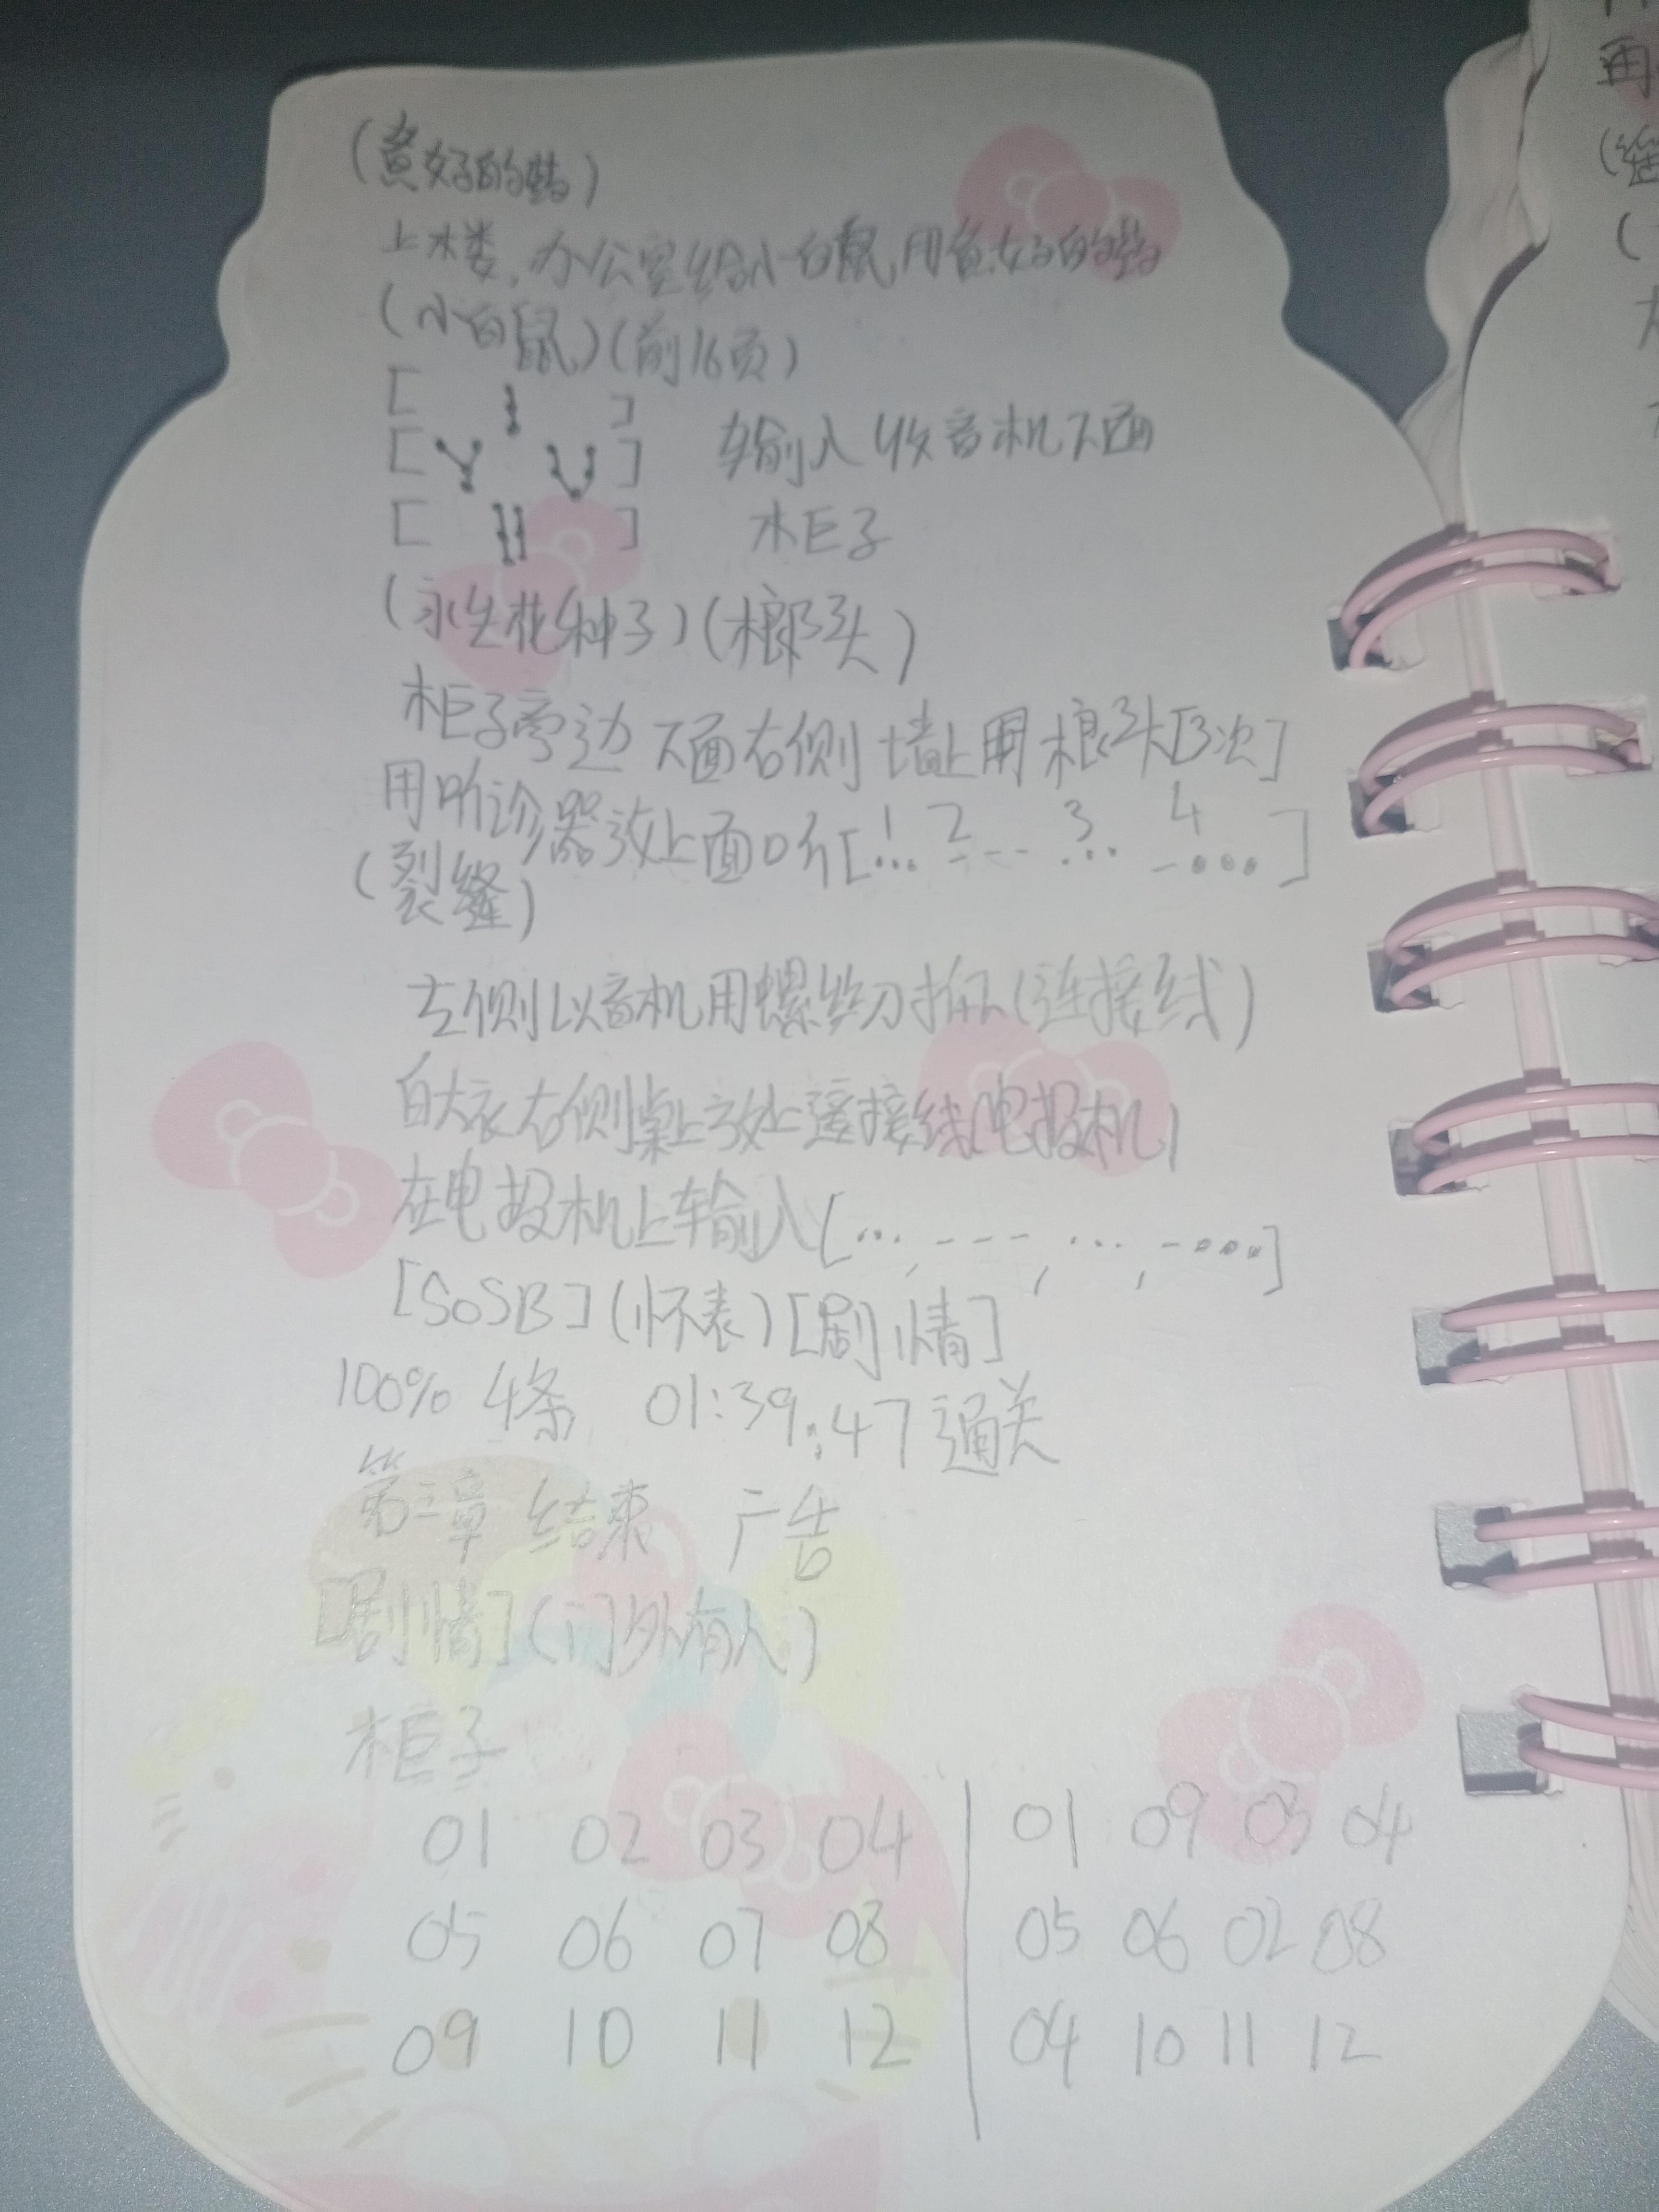 (煮好的蛰)
上楼,办公室给小白鼠用煮好的蛰
(小白鼠)(前16页)
[ ]
[ ] 输入收音机下面
[ ] 柜子
(永生花种子)(榔头)
柜子旁边下面右侧墙上用榔头[3次]
用听诊器放上面听[1... 2--- 3... 4-...]
(裂缝)
左侧收音机用螺丝刀拆下(连接线)
白大衣右侧桌上放上连接线(电报机)
在电报机上输入[...,---,...,-...]
[SOSB](怀表)[剧情]
100% 4条 01:39:47通关
第三章 结束 广告
[剧情](门外有人)
柜子
01 02 03 04 | 01 09 03 04
05 06 07 08 | 05 06 02 08
09 10 11 12 | 04 10 11 12
再